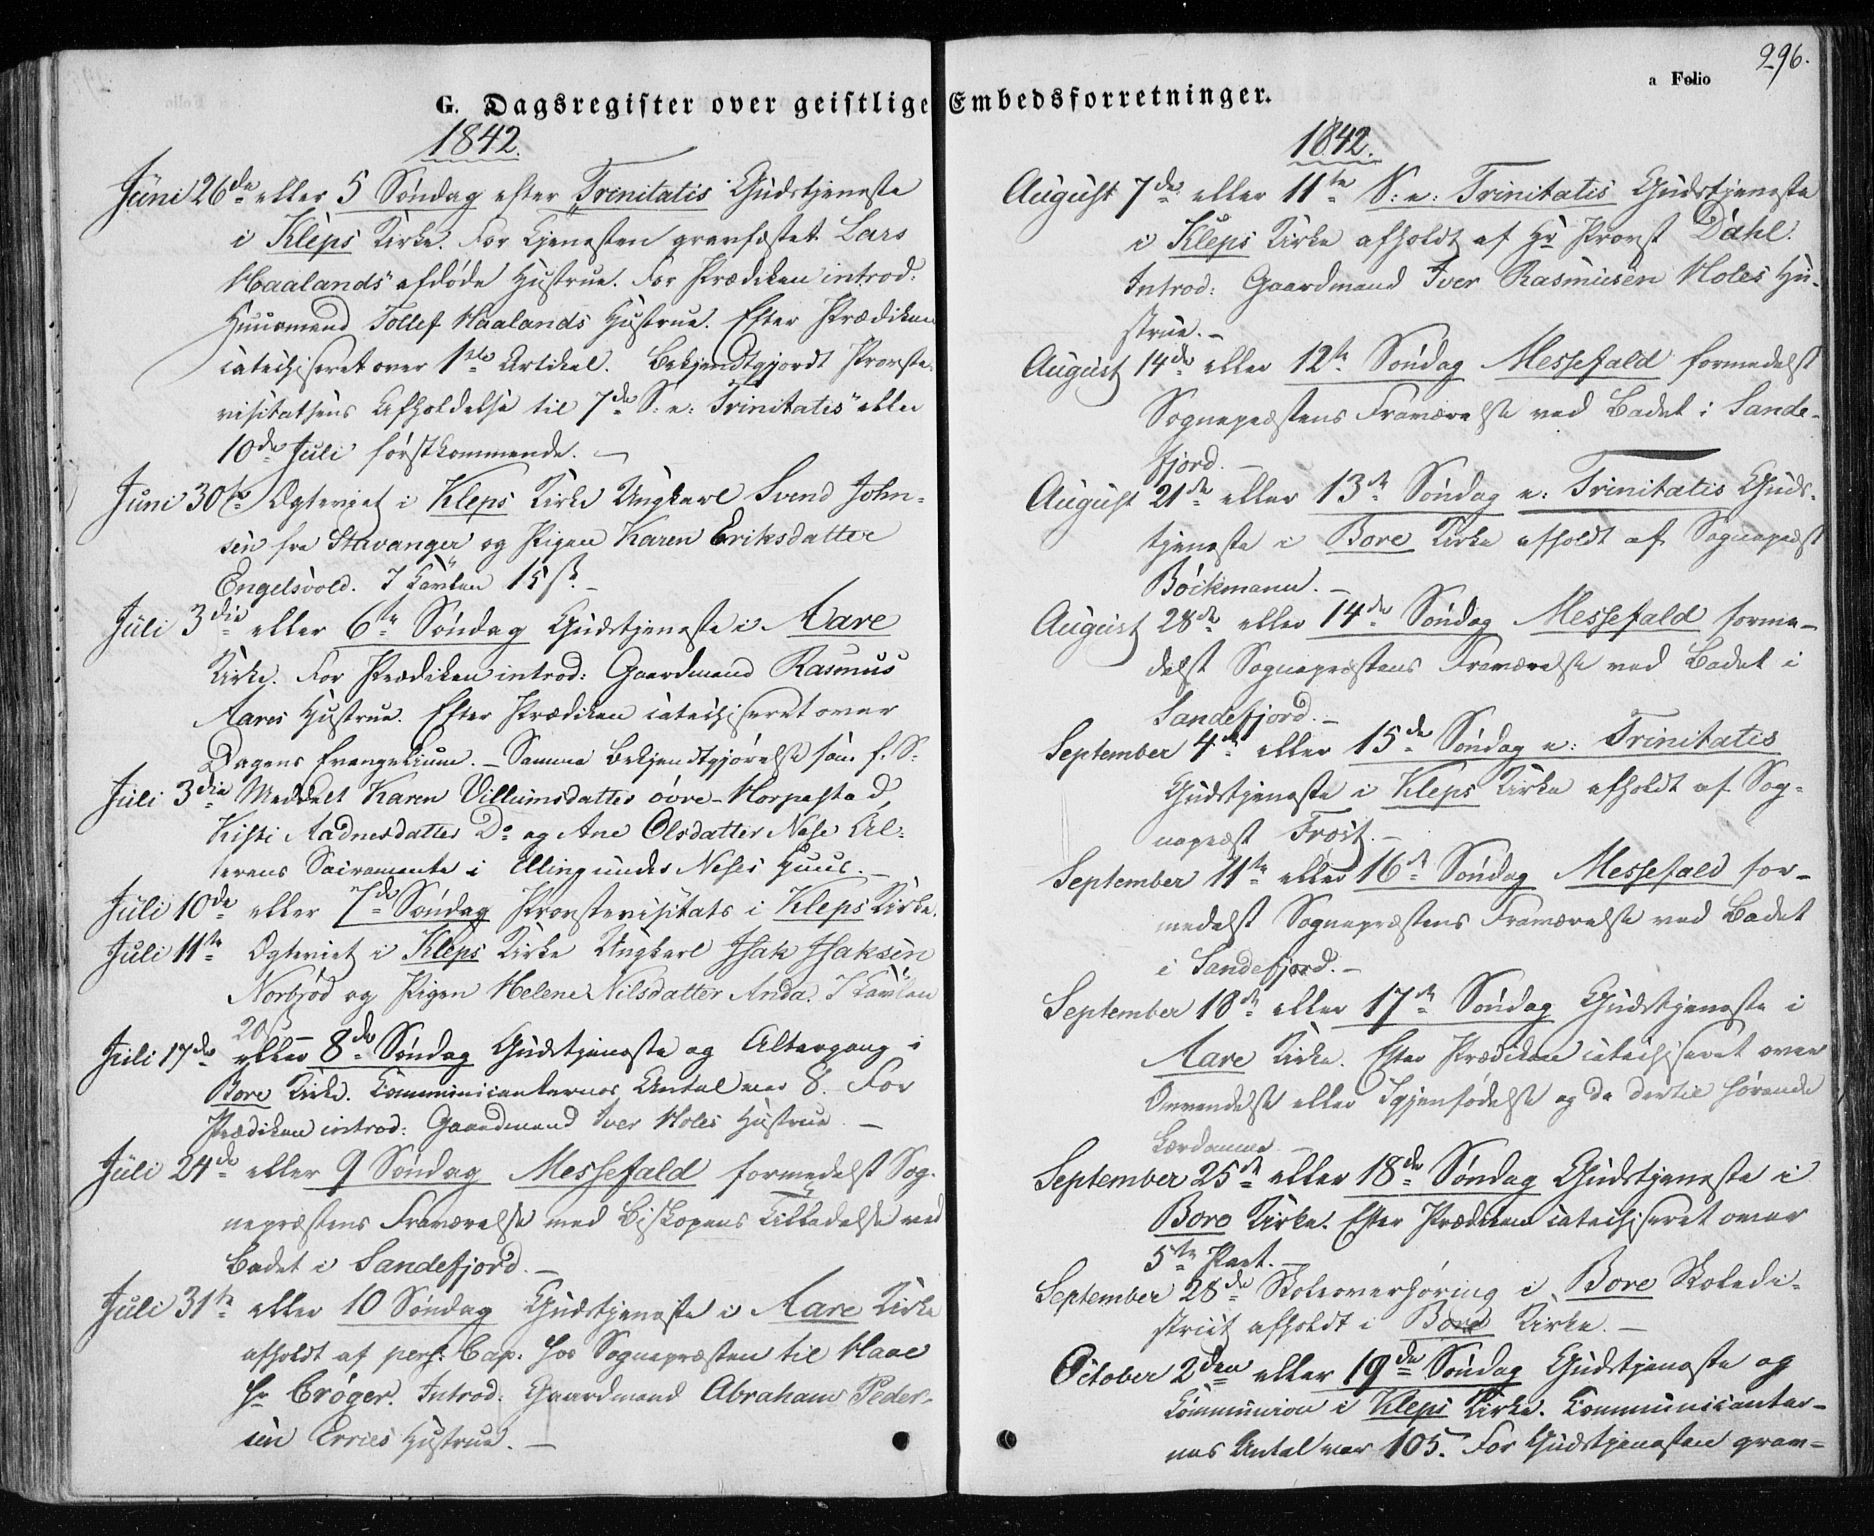 296.
a Folio
G. Dagsregister over geistlige Embedsforretninger.
1842.
Juni 26de eller 5 Søndag efter Trinitatis Gudstjeneste
i Kleps Kirke. Før Tjenesten gravfæstet Lars
Haalands afdøde Hustrue. Før Prædiken introd:
Huusmand Tollef Haalands Hustrue. Efter Prædiken
catechiseret over 1ste Artikel. Bekjendtgjordt Provste-
visitatsens Afholdelse til 7de S: e: Trinitatis eller
10de Juli førstkommende. –
Juni 30te Ægteviet i Kleps Kirke Ungkarl Svend John-
sen fra Stavanger og Pigen Karen Eriksdatter
Engelsvold. I Tavlen 15 ß. –
Juli 3die eller 6te Søndag Gudstjeneste i Aare
Kirke. Før Prædiken introd: Gaardmand Rasmus
Aares Hustrue. Efter Prædiken catechiseret over
Dagens Evangelium. – Samme Bekjendtgjørelse som f. S.
Juli 3die Meddelt Karen Villumsdatter øvre-Horpestad,
Kisti Aadnesdatter Do og Ane Olsdatter Nese Al-
terens Sacramente i Elling Neses Huus. –
Juli 10de eller 7de Søndag Provstevisitats i Kleps Kirke.
Juli 11te Ægteviet i Kleps Kirke Ungkarl Isak Isaksen
Norbjød og Pigen Helene Nilsdatter Anda. I Tavlen
20 ß –
Juli 17de eller 8de Søndag Gudstjeneste og Altergang i
Bore Kirke. Communicanternes Antal var 8. Før
Prædiken introd: Gaardmand Iver Holes Hustrue. –
Juli 24de eller 9 Søndag Messefald formedelst Sog-
nepræstens Fraværelse med Biskopens Tilladelse ved
Badet i Sandefjord. –
Juli 31te eller 10 Søndag Gudstjeneste i Aare Kirke
afholdt af pers: Cap. hos Sognepræsten til Haae
Hr Crøger. Introd: Gaardmand Abraham Peder-
sen Erries Hustrue. –
1842.
August 7de eller 11te S: e: Trinitatis Gudstjeneste
i Kleps Kirke afholdt af Hr Provst Dahl.
Introd: Gaardmand Iver Rasmusen Holes Hu-
strue. –
August 14de eller 12te Søndag Messefald formedelst
Sognepræstens Fraværelse ved Badet i Sande-
fjord. –
August 21de eller 13de Søndag e: Trinitatis Guds-
tjeneste i Bore Kirke afholdt af Sognepræst
Böckmann. –
August 28de eller 14de Søndag Messefald forme-
delst Sognepræstens Fraværelse ved Badet i
Sandefjord. –
September 4de eller 15de Søndag e: Trinitatis
Gudstjeneste i Kleps Kirke afholdt af Sog-
nepræst Frost. –
September 11te eller 16de Søndag Messefald for-
medelst Sognepræstens Fraværelse ved Badet
i Sandefjord. –
September 18de eller 17de Søndag Gudstjeneste i
Aare Kirke. Efter Prædiken catechiseret over
Omvendelse eller Igjenfødelse og de dertil hørende
Lærdomme –
September 25de eller 18de Søndag Gudstjeneste i
Bore Kirke. Efter Prædiken catechiseret over
5te Part. –
September 28de Skoleoverhøring i Bore Skoledi-
strict afholdt i Bore Kirke. –
October 2den eller 19de Søndag Gudstjeneste og
Communion i Kleps Kirke. Communicanter-
nes Antal var 105. Før Gudstjenesten grav-